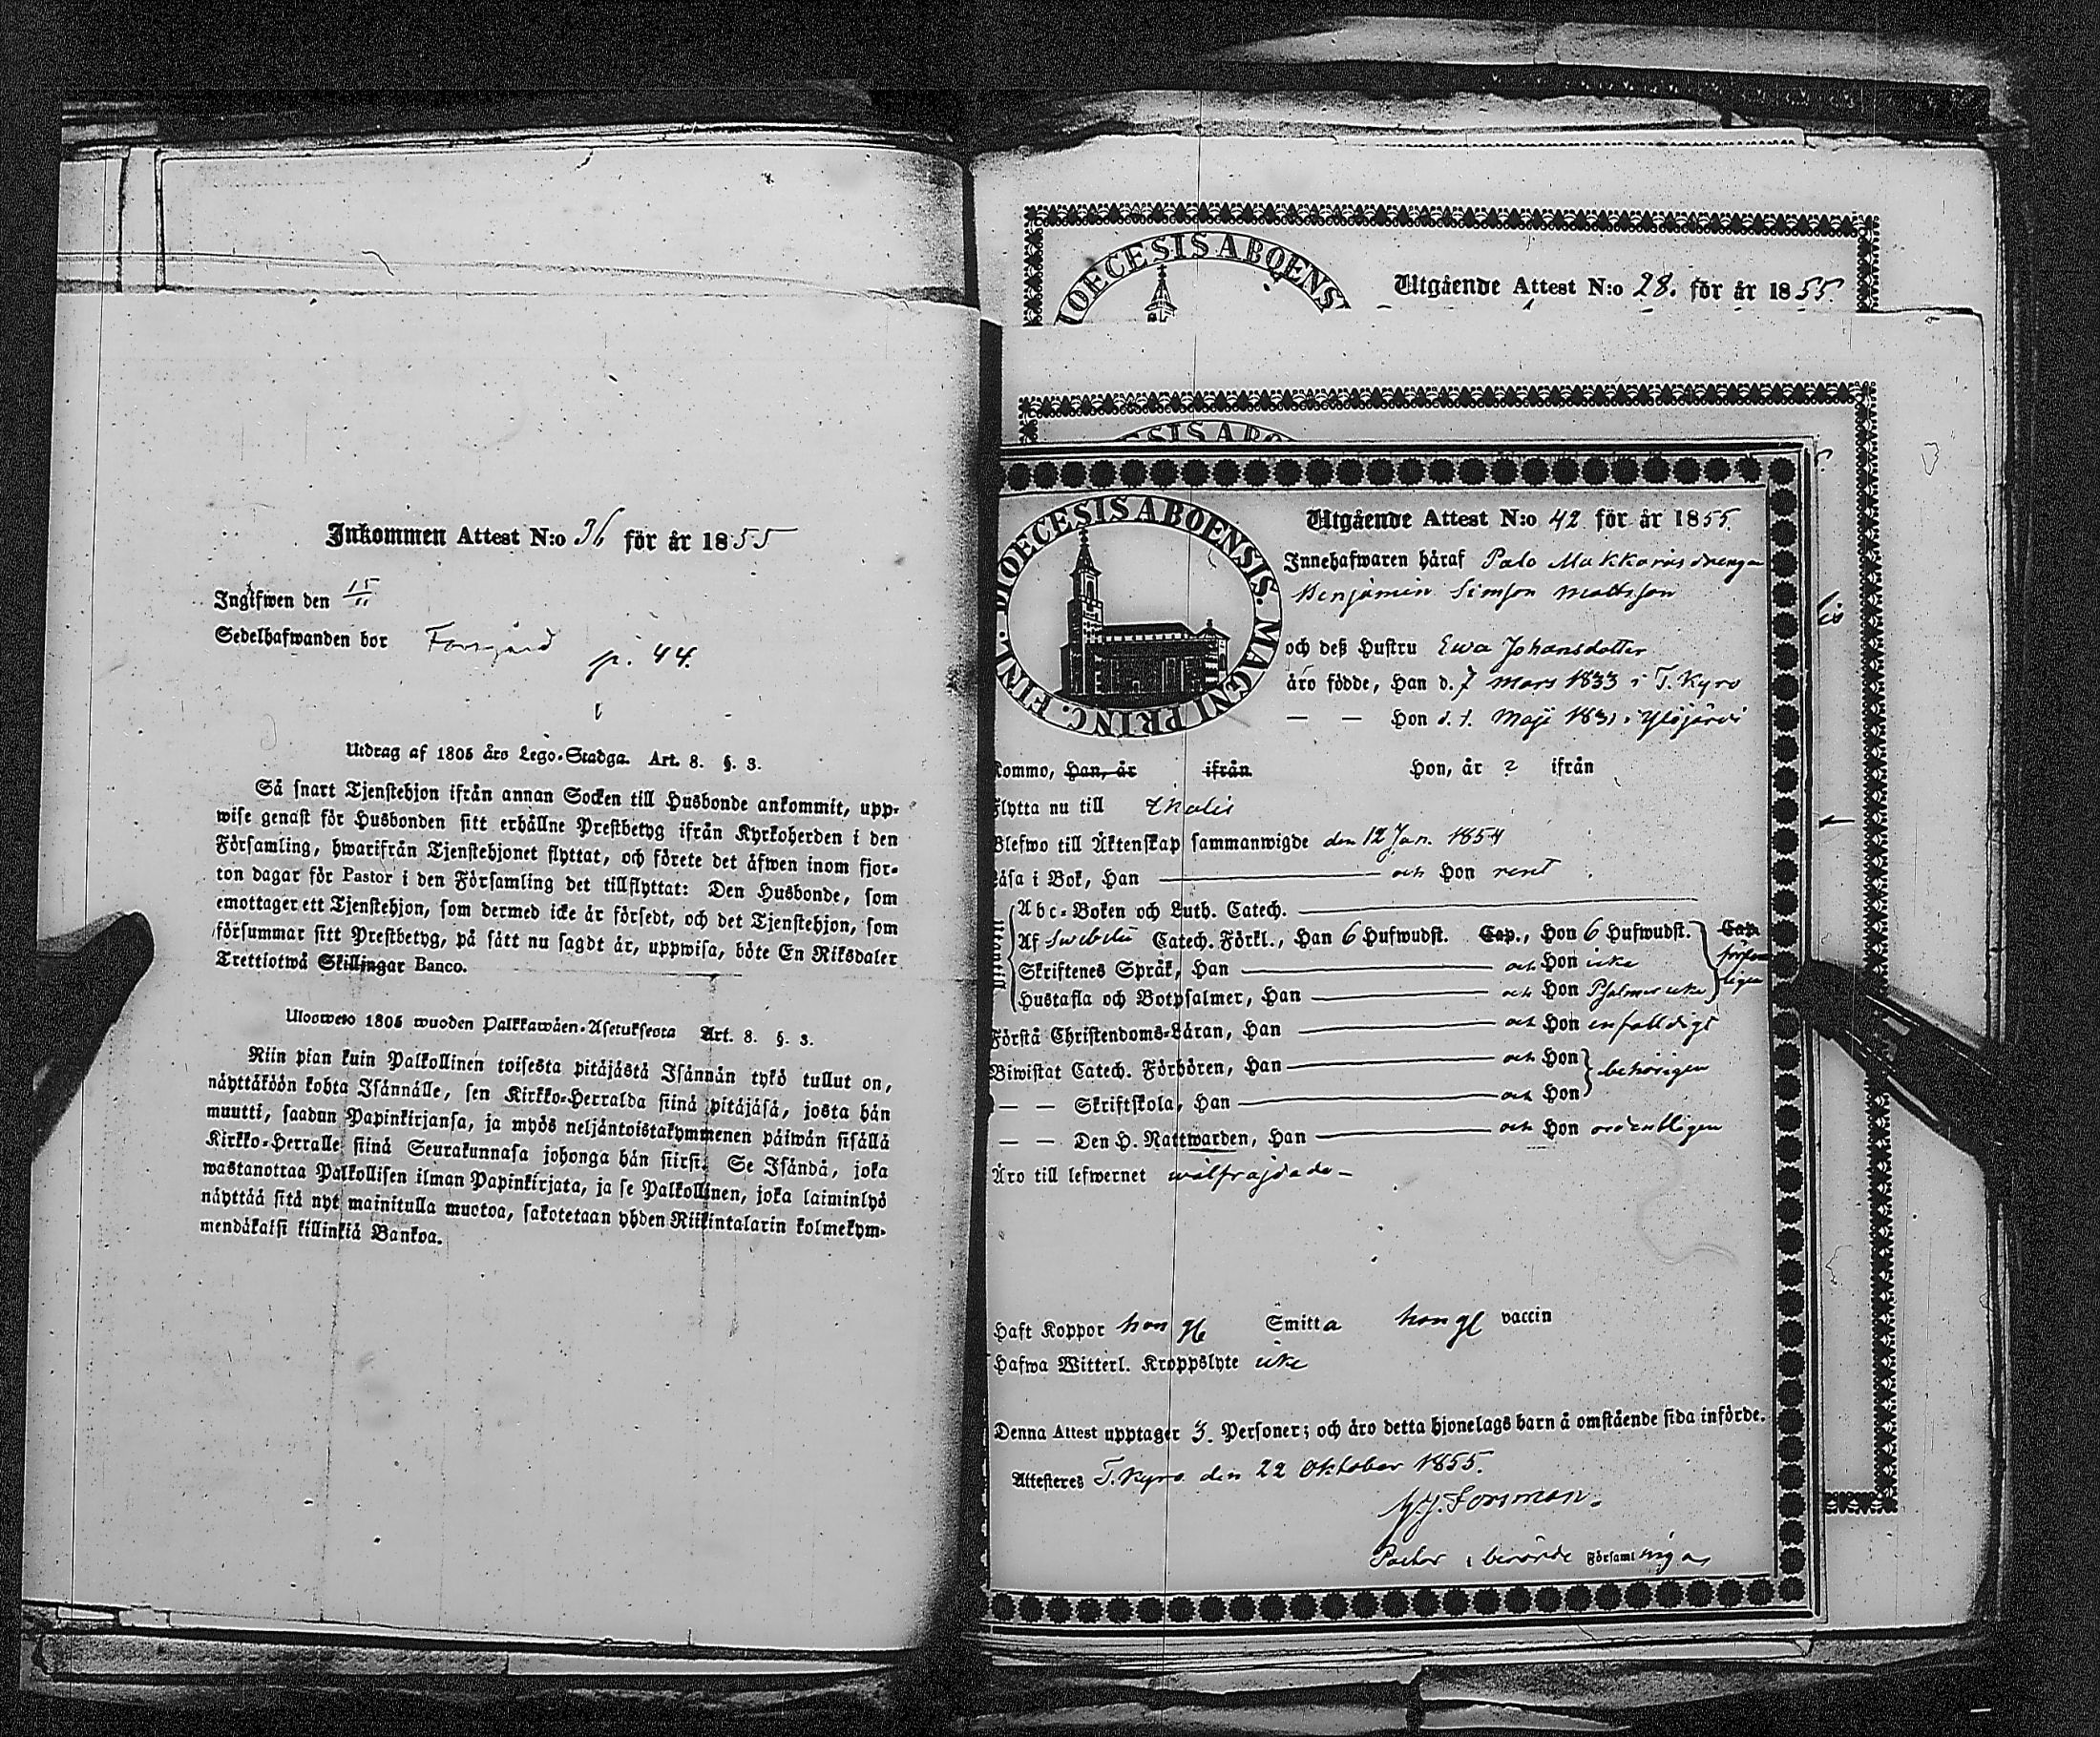 Inkommen Attest N:o 36 för år 1855
Ingifwen den 15/11
Sedelhafwanden bor Forsgård p. 44.
Utdrag af 1805 års Lego-Stadga. Art. 8. §. 3.
Så snart Tjenstehjon ifrån annan Socken till Husbonde ankommit, upp-
wise genast för Husbonden sitt erhållne Prestbetyg ifrån Kyrkoherden i den
Församling, hwarifrån Tjenstehjonet flyttat, och förete det äfwen inom fjor-
ton dagar för Pastor i den Församling det tillflyttat: Den Husbonde, som
emottager ett Tjenstehjon, som dermed icke är försedt, och det Tjenstehjon, som
försummar sitt Prestbetyg, på sätt nu sagdt är, uppwisa, böte En Riksdaler
Trettiotwå Skillingar Banco.
Ulosweto 1805 wuoden Palkkawäen-Asetuksesta Art. 8. §. 3.
Niin pian kuin Palkollinen toisesta pitäjästä Isännän tykö tullut on,
näyttäköön kohta Isännälle, sen Kirkko-Herralda siinä pitäjäsä, josta hän
muutti, saadun Papinkirjansa, ja myös neljäntoistakymmenen päiwän sisällä
Kirkko-Herralle siinä Seurakunnasa johonga hän siirsi. Se Isändä, joka
wastanottaa Palkollisen ilman Papinkirjata, ja se Palkollinen, joka laiminlyö
näyttää sitä nyt mainitulla muotoa, sakotetaan yhden Riikintalarin kolmekym-
mendäkaksi killinkiä Bankoa.
DIOECESIS ABOENS
Utgående Attest N:o 28. för år 1855.
ESIS ABO
DIOECESIS ABOENSIS. MAGNI PRINC. FINL.
Utgående Attest N:o 42 för år 1855.
Innehafwaren häraf Palo Makkaris drengen
Benjamin Simson Mattsson
och dess Hustru Ewa Johansdotter
äro födde, Han d. 7 Mars 1833 i T. Kyro
— — Hon d. 1. Maji 1831 i Ylöjärvi
Kommo, Han, år ifrån Hon, år ? ifrån
Flytta nu till Ikalis
Blefwo till Äktenskap sammanwigde den 12 Jan. 1854
Läsa i Bok, Han — och Hon rent
Abc-Boken och Luth. Catech. —
Af Swebelii Catech. Förkl., Han 6 Hufwudst. Cap., Hon 6 Hufwudst. Cap.
Skriftenes Språk, Han — och Hon icke
Hustafla och Botpsalmer, Han — och Hon Psalmer icke
Förstå Christendoms-Läran, Han — och Hon enfalldigt
Biwistat Catech. Förhören, Han — och Hon behörigen
— — Skriftskola, Han — och Hon
— — Den H. Nattwarden, Han — och Hon ordentligen
Äro till lefwernet wälfrejdade —
Haft Koppor Smitta vaccin
Hafwa Witterl. Kroppslyte icke
Denna Attest upptager 3. Personer; och äro detta hjonelags barn å omstående sida införde.
Attesteres T. Kyro den 22 Oktober 1855.
Forsman.
Pastor i berörde Församlingar